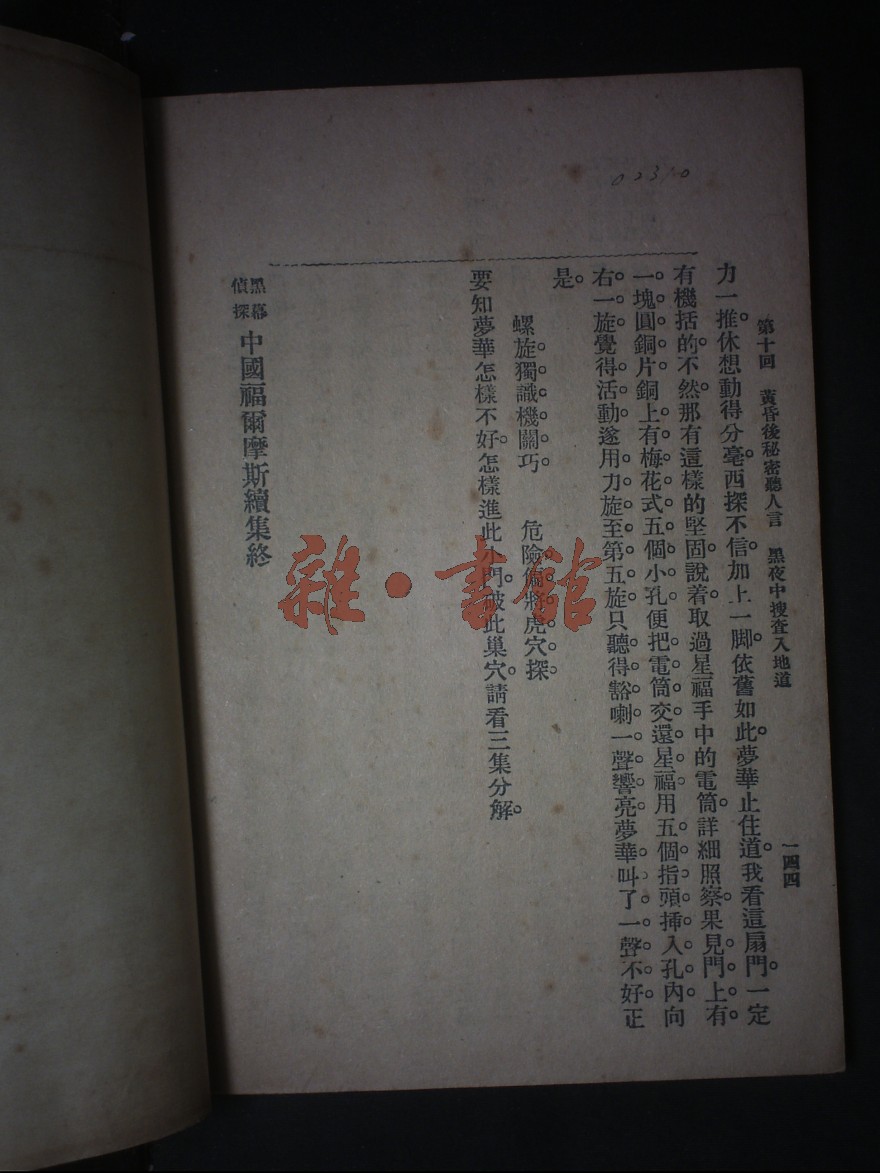 02310
第十回　黃昏後秘密聽人言　黑夜中搜查入地道
一四四
力一推。休想動得分毫。西探不信。加上一脚。依舊如此。夢華止住道。我看這扇門。一定
有機括的。不然。那有這樣的堅固。說着。取過星福手中的電筒。詳細照察。果見門上有
一塊圓銅片。銅上有梅花式五個小孔。便把電筒交還星福。用五個指頭。揷入孔內。向
右一旋。覺得活動。遂用力旋至第五旋。只聽得豁喇一聲響亮。夢華叫了一聲不好。正
是。
螺旋獨識機關巧。　危險偏將虎穴探。
要知夢華怎樣不好。怎樣進此小門。破此巢穴。請看三集分解。
黑幕偵探　中國福爾摩斯續集終
雜·書館